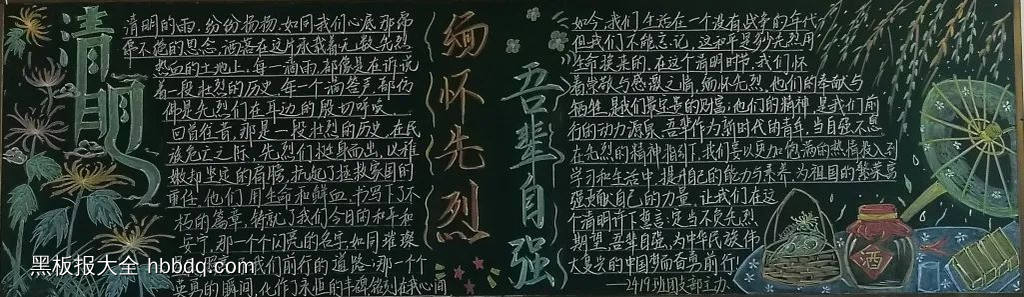 清明
清明的雨，纷纷扬扬，如同我们心底那席
卷不绝的思念，洒落在这片承载着无数先烈
热血的土地上。每一滴雨，都像是在诉说
着一段壮烈的历史，每一个滴答声，都仿
佛是先烈们在耳边的殷切呼唤。
回首往昔，那是一段壮烈的历史，在民
族危亡之际，先烈们挺身而出，以稚
嫩却坚定的肩膀，扛起了拯救家国的
重任，他们用生命和鲜血，书写下了不
朽的篇章，铸就了我们今日的和平和
安宁，那一个个闪亮的名字，如同璀璨
我们前行的道路；那一个
的瞬间，化作了永恒的丰碑，铭刻在我心间
缅怀先烈
吾辈自强
如今，我们生活在一个没有战争的年代，
但我们不能忘记，这和平是先烈用
生命换来的，在这个清明时节，我们怀
着崇敬与感激之情，缅怀先烈，他们的奉献与
牺牲，是我们最宝贵的财富；他们的精神，是我们前
行的动力源泉，吾辈作为新时代的青年，当自强不息
在先烈的精神指引下，我们要以更加饱满的热情投入到
学习和生活中，提升自己的能力与素养，为祖国的繁荣富
强贡献自己的力量，让我们在这
个清明许下誓言：定当不负先烈
期望，吾辈自强，为中华民族伟
大复兴的中国梦而奋勇前行！
——2419班团支部主办
酒
黑板报大全 hbbdq.com